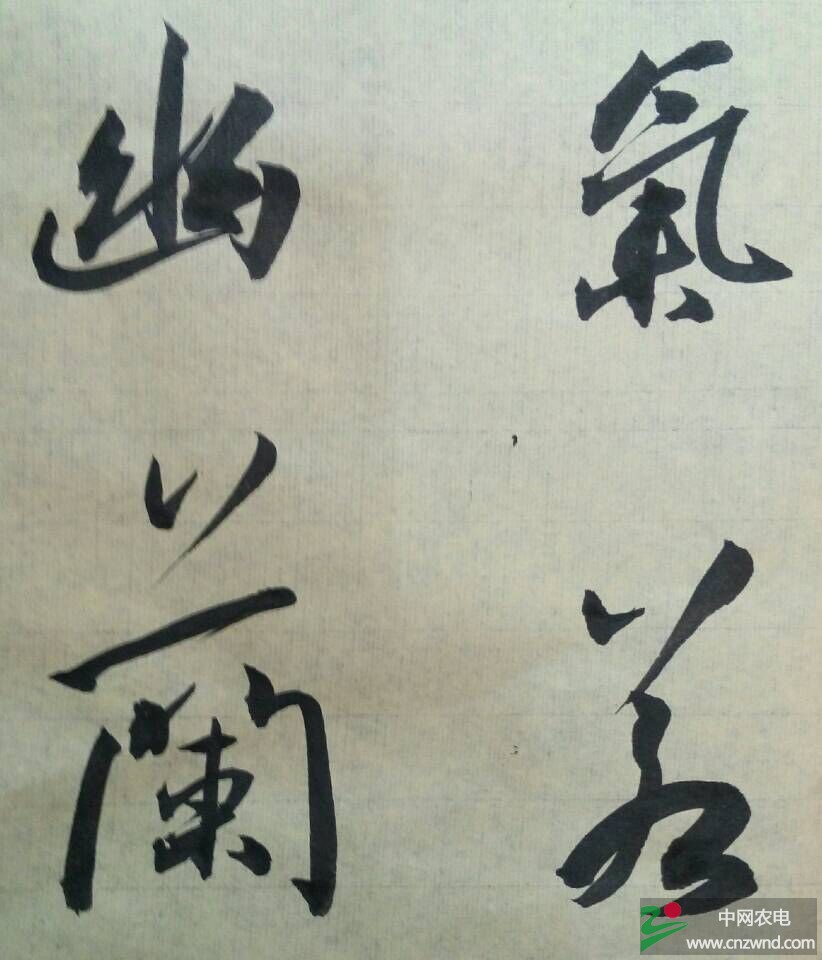 氣若
幽蘭
中网农电
www.cnzwnd.com